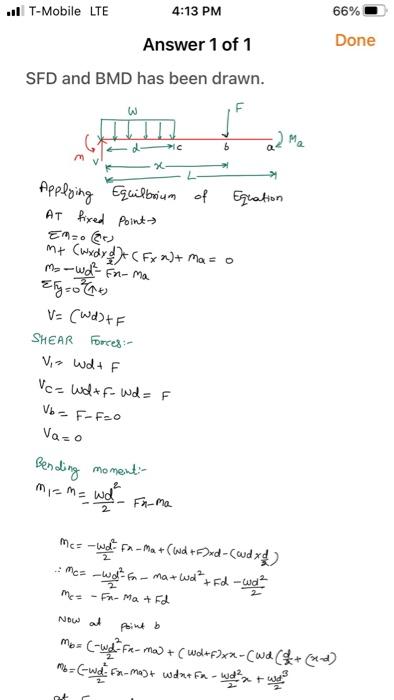 T-Mobile LTE 4:13 PM 66%
Answer 1 of 1 Done
SFD and BMD has been drawn.
W F
m V d c b a Ma
x
L
Applying Equilbrium of Equation
AT fixed Point→
Σm=0
m+ (wxdxd/2)+(Fxx)+ma=0
m= -wd²/2 - Fx - ma
ΣFy=0(↑+)
V= (wd)+F
SHEAR Forces:-
V₁= wd+F
Vc= wd+F-wd= F
Vb= F-F=0
Va=0
Bending moment:-
m₁=m= -wd²/2 - Fx-ma
mc= -wd²/2 - Fx-ma+(wd+F)xd-(wdxd/2)
∴ mc= -wd²/2 - Fx - ma+wd²+Fd -wd²/2
mc= -Fx-ma+Fd
Now at point b
mb= (-wd²/2 - Fx-ma) + (wd+F)xx-(wd(d/2+(x-d)
mb= (-wd²/2 - Fx-ma)+ wdx+Fx -wd²/2 x + wd³/2